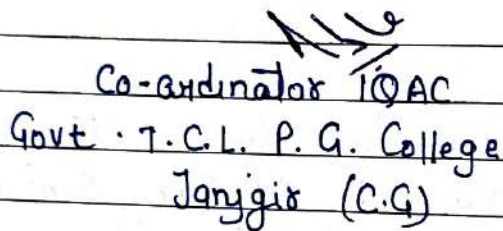 Co-ordinator IQAC
Govt. T.C.L. P.G. College
Janjgir (C.G)